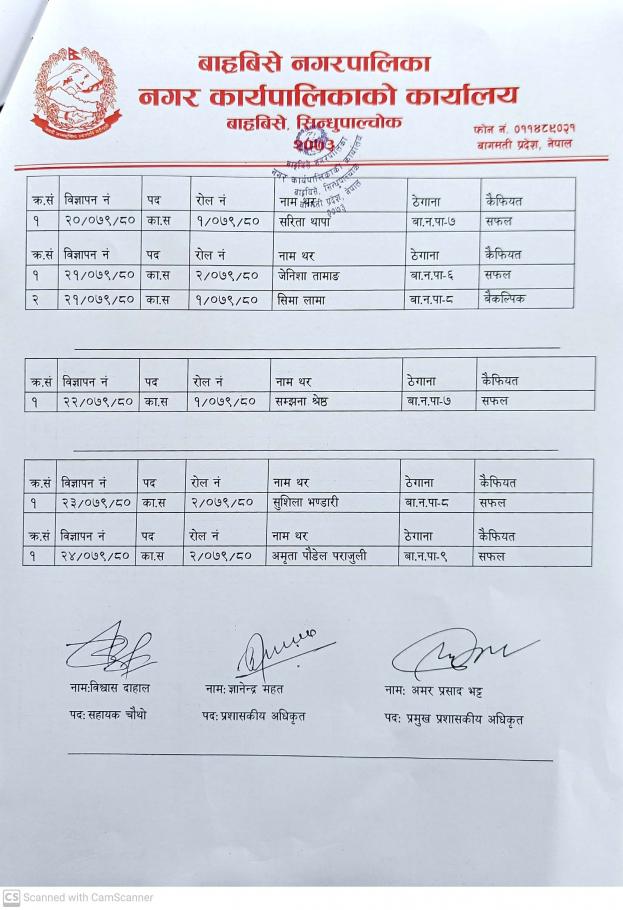 बाह्रबिसे नगरपालिका
नगर कार्यपालिकाको कार्यालय
बाह्रबिसे, सिन्धुपाल्चोक
२०७३
फोन नं. ०११४८९०२१
बागमती प्रदेश, नेपाल
बाह्रबिसे नगरपालिका
नगर कार्यपालिकाको कार्यालय
बाह्रबिसे, सिन्धुपाल्चोक
बागमती प्रदेश, नेपाल
२०७३
क्र.सं विज्ञापन नं पद रोल नं नाम थर ठेगाना कैफियत
१ २०/०७९/८० का.स १/०७९/८० सरिता थापा बा.न.पा-७ सफल
क्र.सं विज्ञापन नं पद रोल नं नाम थर ठेगाना कैफियत
१ २१/०७९/८० का.स २/०७९/८० जेनिशा तामाङ बा.न.पा-६ सफल
२ २१/०७९/८० का.स १/०७९/८० सिमा लामा बा.न.पा-८ बैकल्पिक
क्र.सं विज्ञापन नं पद रोल नं नाम थर ठेगाना कैफियत
१ २२/०७९/८० का.स १/०७९/८० सम्झना श्रेष्ठ बा.न.पा-७ सफल
क्र.सं विज्ञापन नं पद रोल नं नाम थर ठेगाना कैफियत
१ २३/०७९/८० का.स २/०७९/८० सुशिला भण्डारी बा.न.पा-८ सफल
क्र.सं विज्ञापन नं पद रोल नं नाम थर ठेगाना कैफियत
१ २४/०७९/८० का.स २/०७९/८० अमृता पौडेल पराजुली बा.न.पा-९ सफल
नाम:विश्वास दाहाल नाम: ज्ञानेन्द्र महत नाम: अमर प्रसाद भट्ट
पद: सहायक चौथो पद: प्रशासकीय अधिकृत पद: प्रमुख प्रशासकीय अधिकृत
CS Scanned with CamScanner